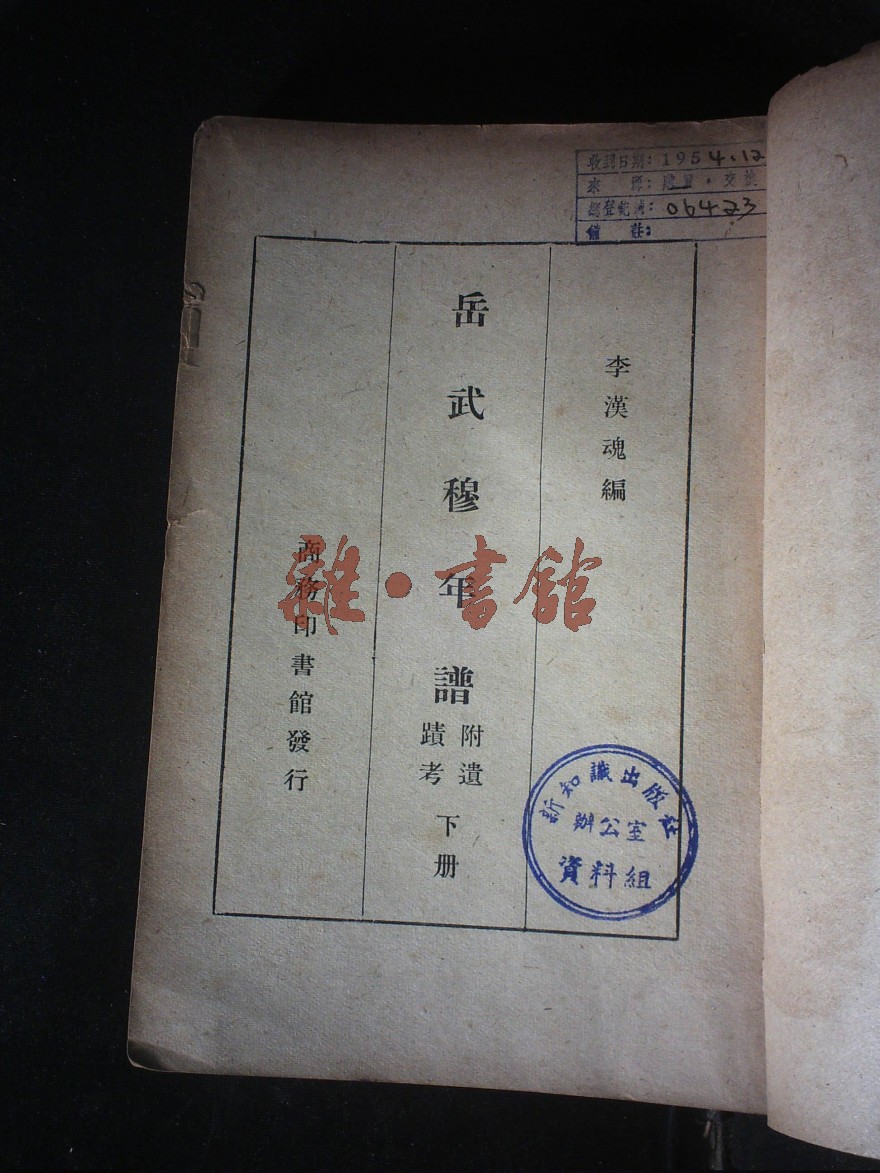 收到日期：1954.12
來　源：　・交換
總登記號：06423
備　註：
李漢魂編
岳武穆年譜
附遺
蹟考
下册
商務印書館發行
雜・書館
新知識出版社
辦公室
資料組